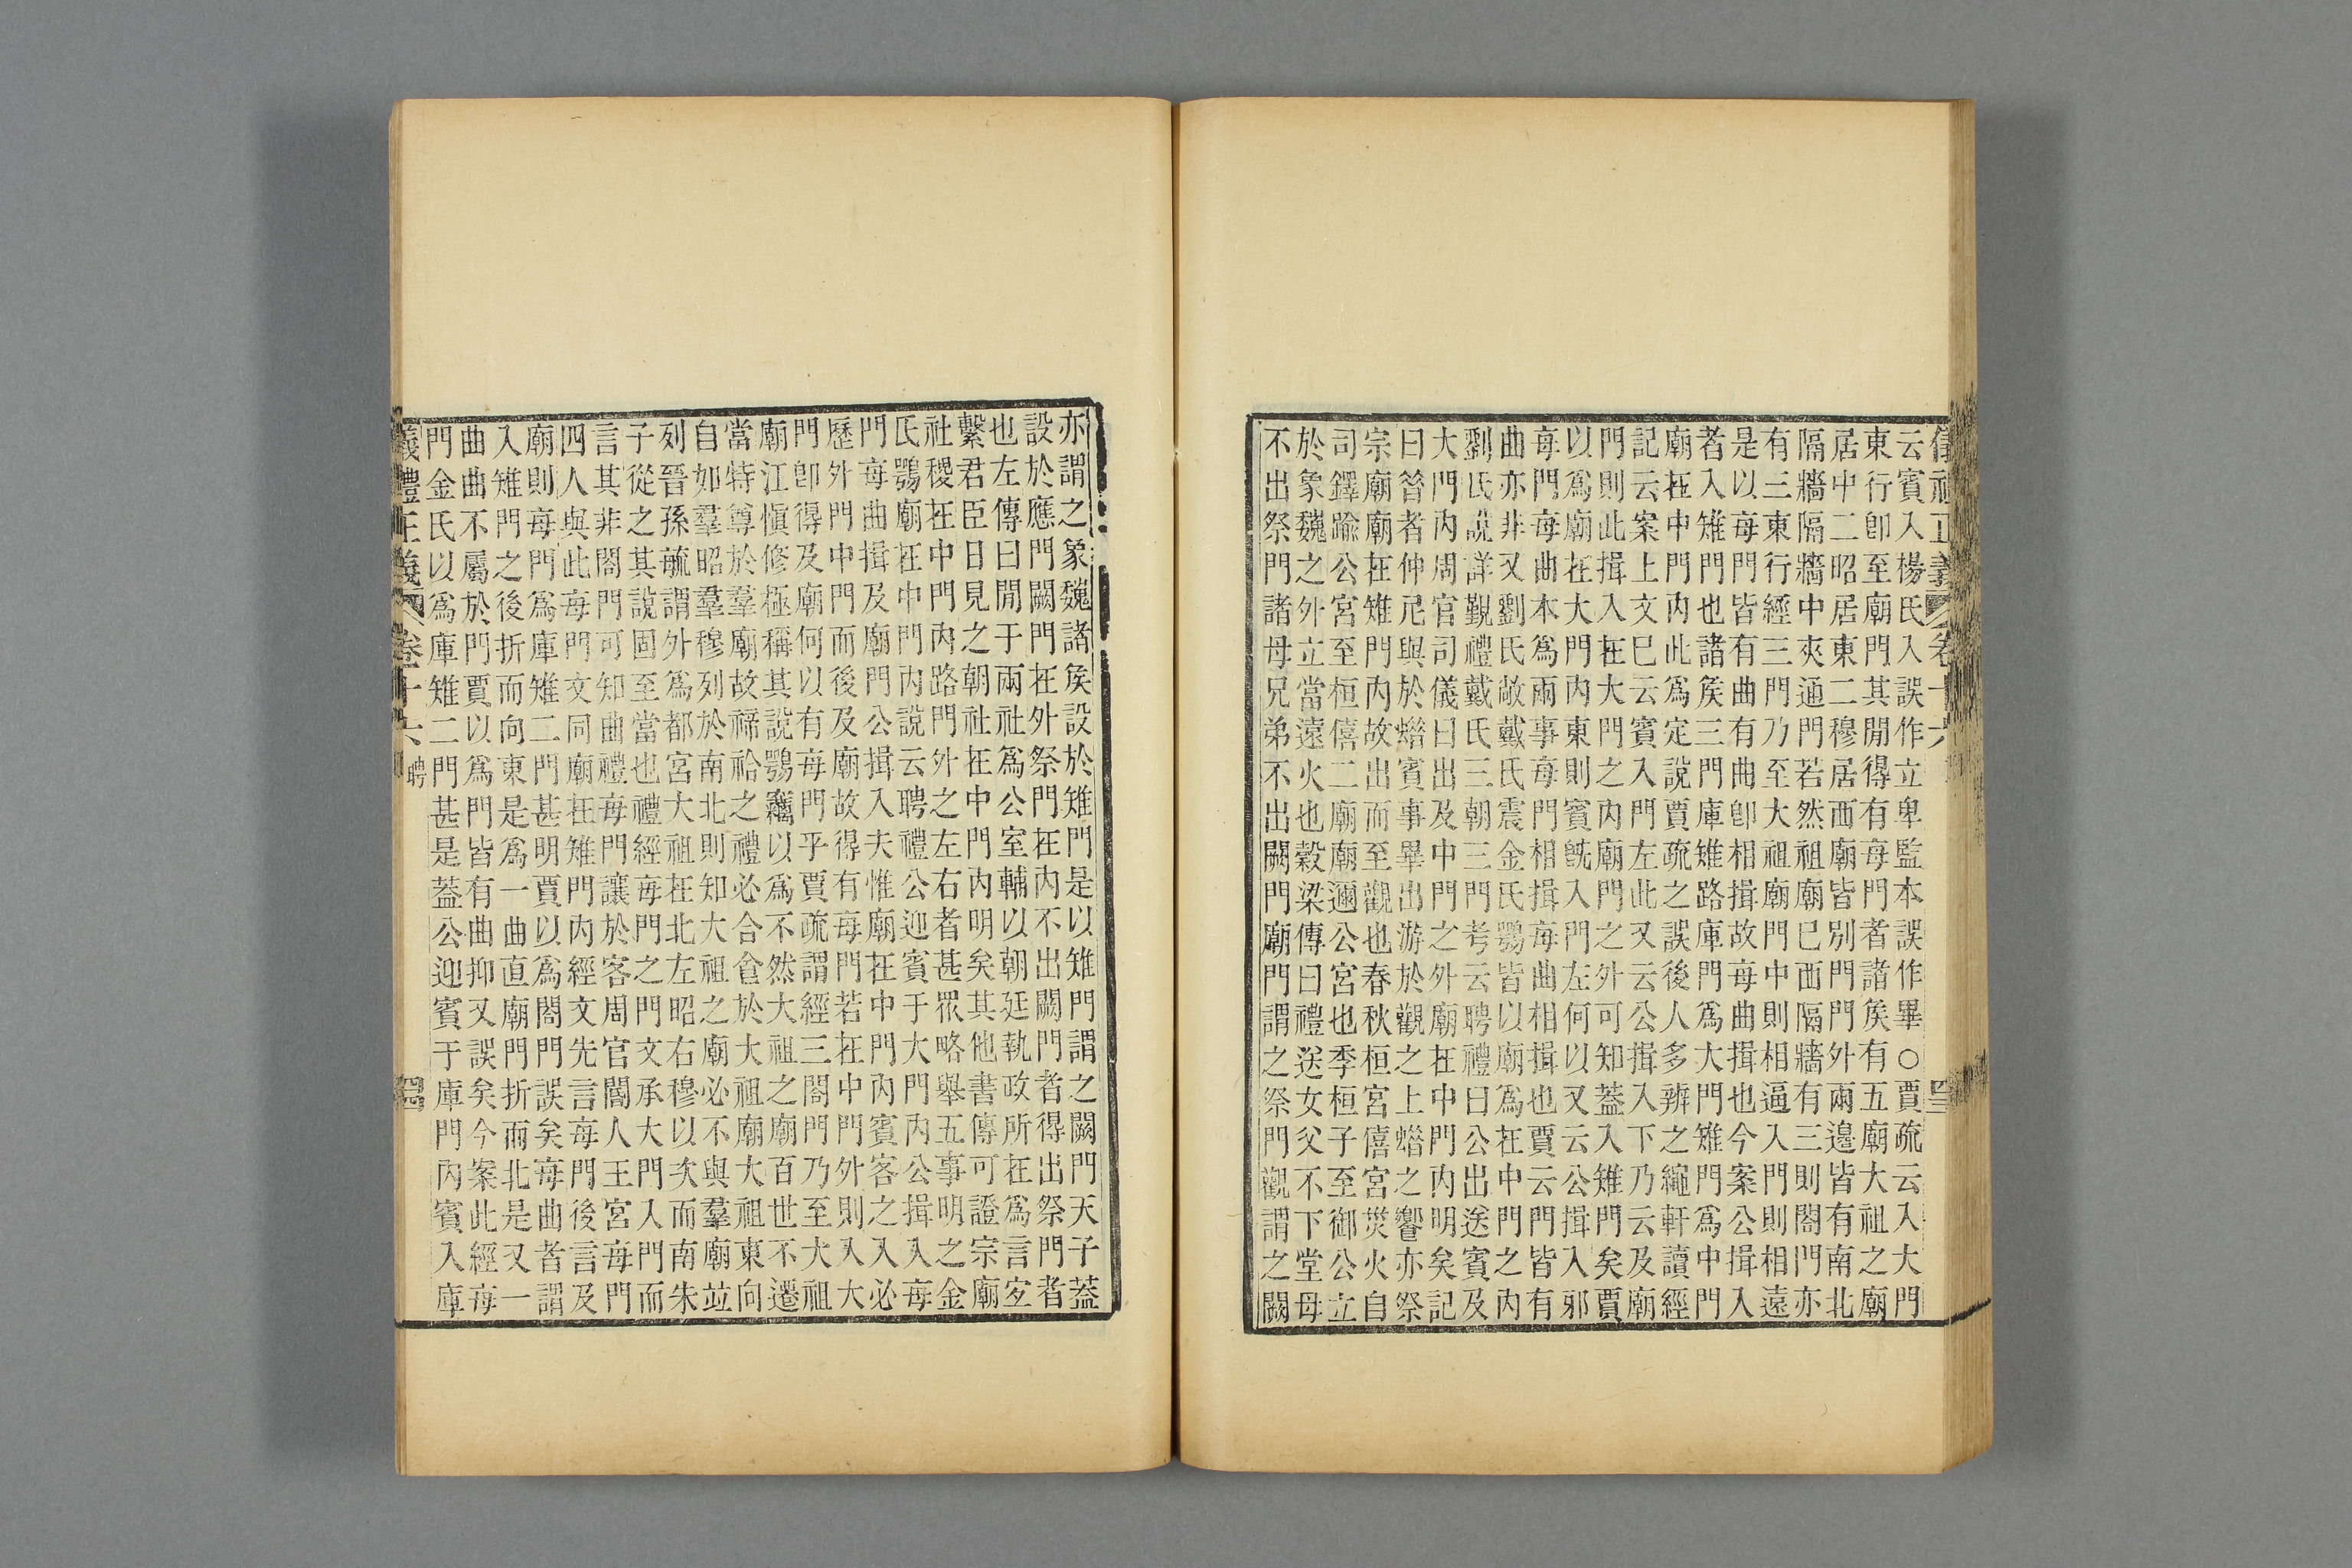 儀禮正義 卷十六
云賓入楊氏入誤作立卑監本誤作畢○賈疏云入大門
東行卽至廟門其閒得有每門者諸矦有五廟大祖之廟
居中二昭居東二穆居西廟皆別門門外兩邊皆有南北
隔牆隔牆中夾通門若然祖廟已西隔牆有三則閤門亦
有三東行經三門乃至大祖廟門中則相逼入門則相遠
是以每門皆有曲有曲卽相揖故每曲揖也今案公揖入
者入雉門也諸矦三門庫雉路庫門爲大門雉門爲中門
廟在中門內此爲定說賈疏之誤後人多辨之繩軒讀經
記云案上文巳云賓入門左此又云公揖入下乃云及廟
門則此揖入在大門之內廟門之外可知蓋入雉門矣賈
以爲廟在大門內東則賓旣入門左何以又云公揖入邪
每門每曲本爲兩事每門相揖每曲相揖也賈云門皆有
曲亦非又劉氏敞戴氏震金氏鶚皆以廟爲在中門之內
劉氏說詳覲禮戴氏三朝三門考云聘禮曰公出送賓及
大門內周官司儀曰出及中門之外廟在中門內明矣記
曰昝者仲尼與於蜡賓事畢出游於觀之上蜡之饗亦祭
宗廟廟在雉門內故出而至觀也春秋桓宮僖宮災火自
司鐸踰公宮至桓僖二廟廟邇公宮也季桓子至御公立
於象魏之外立當遠火也穀梁傳曰禮送女父不下堂母
不出祭門諸母兄弟不出闕門廟門謂之祭門觀謂之闕
亦謂之象魏諸矦設於雉門是以雉門謂之闕門天子蓋
設於應門闕門在外祭門在內不出闕門者得出祭門者
也左傳曰閒于兩社爲公室輔以朝廷執政所在爲言宐
繫君臣日見之朝社在中門內明矣其他書傳可證宗廟
社稷在中門內路門外之左右者甚眾略舉五事明之金
氏鶚廟在中門內說云聘禮公迎賓于大門內公揖入每
門每曲揖及廟門公揖入夫惟廟在中門內賓客之入必
歷外門中門而後及廟故得有每門若在中門外則入大
門卽得及廟何以有每門乎賈疏謂經三閤門乃至大祖
廟江愼修極稱其說鶚竊以爲不然大祖之廟百世不遷
當特尊於羣廟故禘祫之禮必合食於大祖廟大祖東向
自如羣昭羣穆列於南北則知大祖之廟必不與羣廟竝
列晉孫毓謂外爲都宮大祖在北左昭右穆以次而南朱
子從之其說固至當也禮經每門之門文承大門入門而
言其非閤門可知曲禮每門讓於客周官閽人王宮每門
四人與此每門文同廟在雉門內經文先言每門後言及
廟則每門爲庫雉二門甚明賈以爲閤門誤矣每曲者謂
入雉門之後折而向東是爲一曲直廟門折而北是又一
曲曲不屬於門賈以爲門皆有曲抑又誤矣今案此經每
門金氏以爲庫雉二門甚是蓋公迎賓于庫門內賓入庫
儀禮正義 卷十六 聘